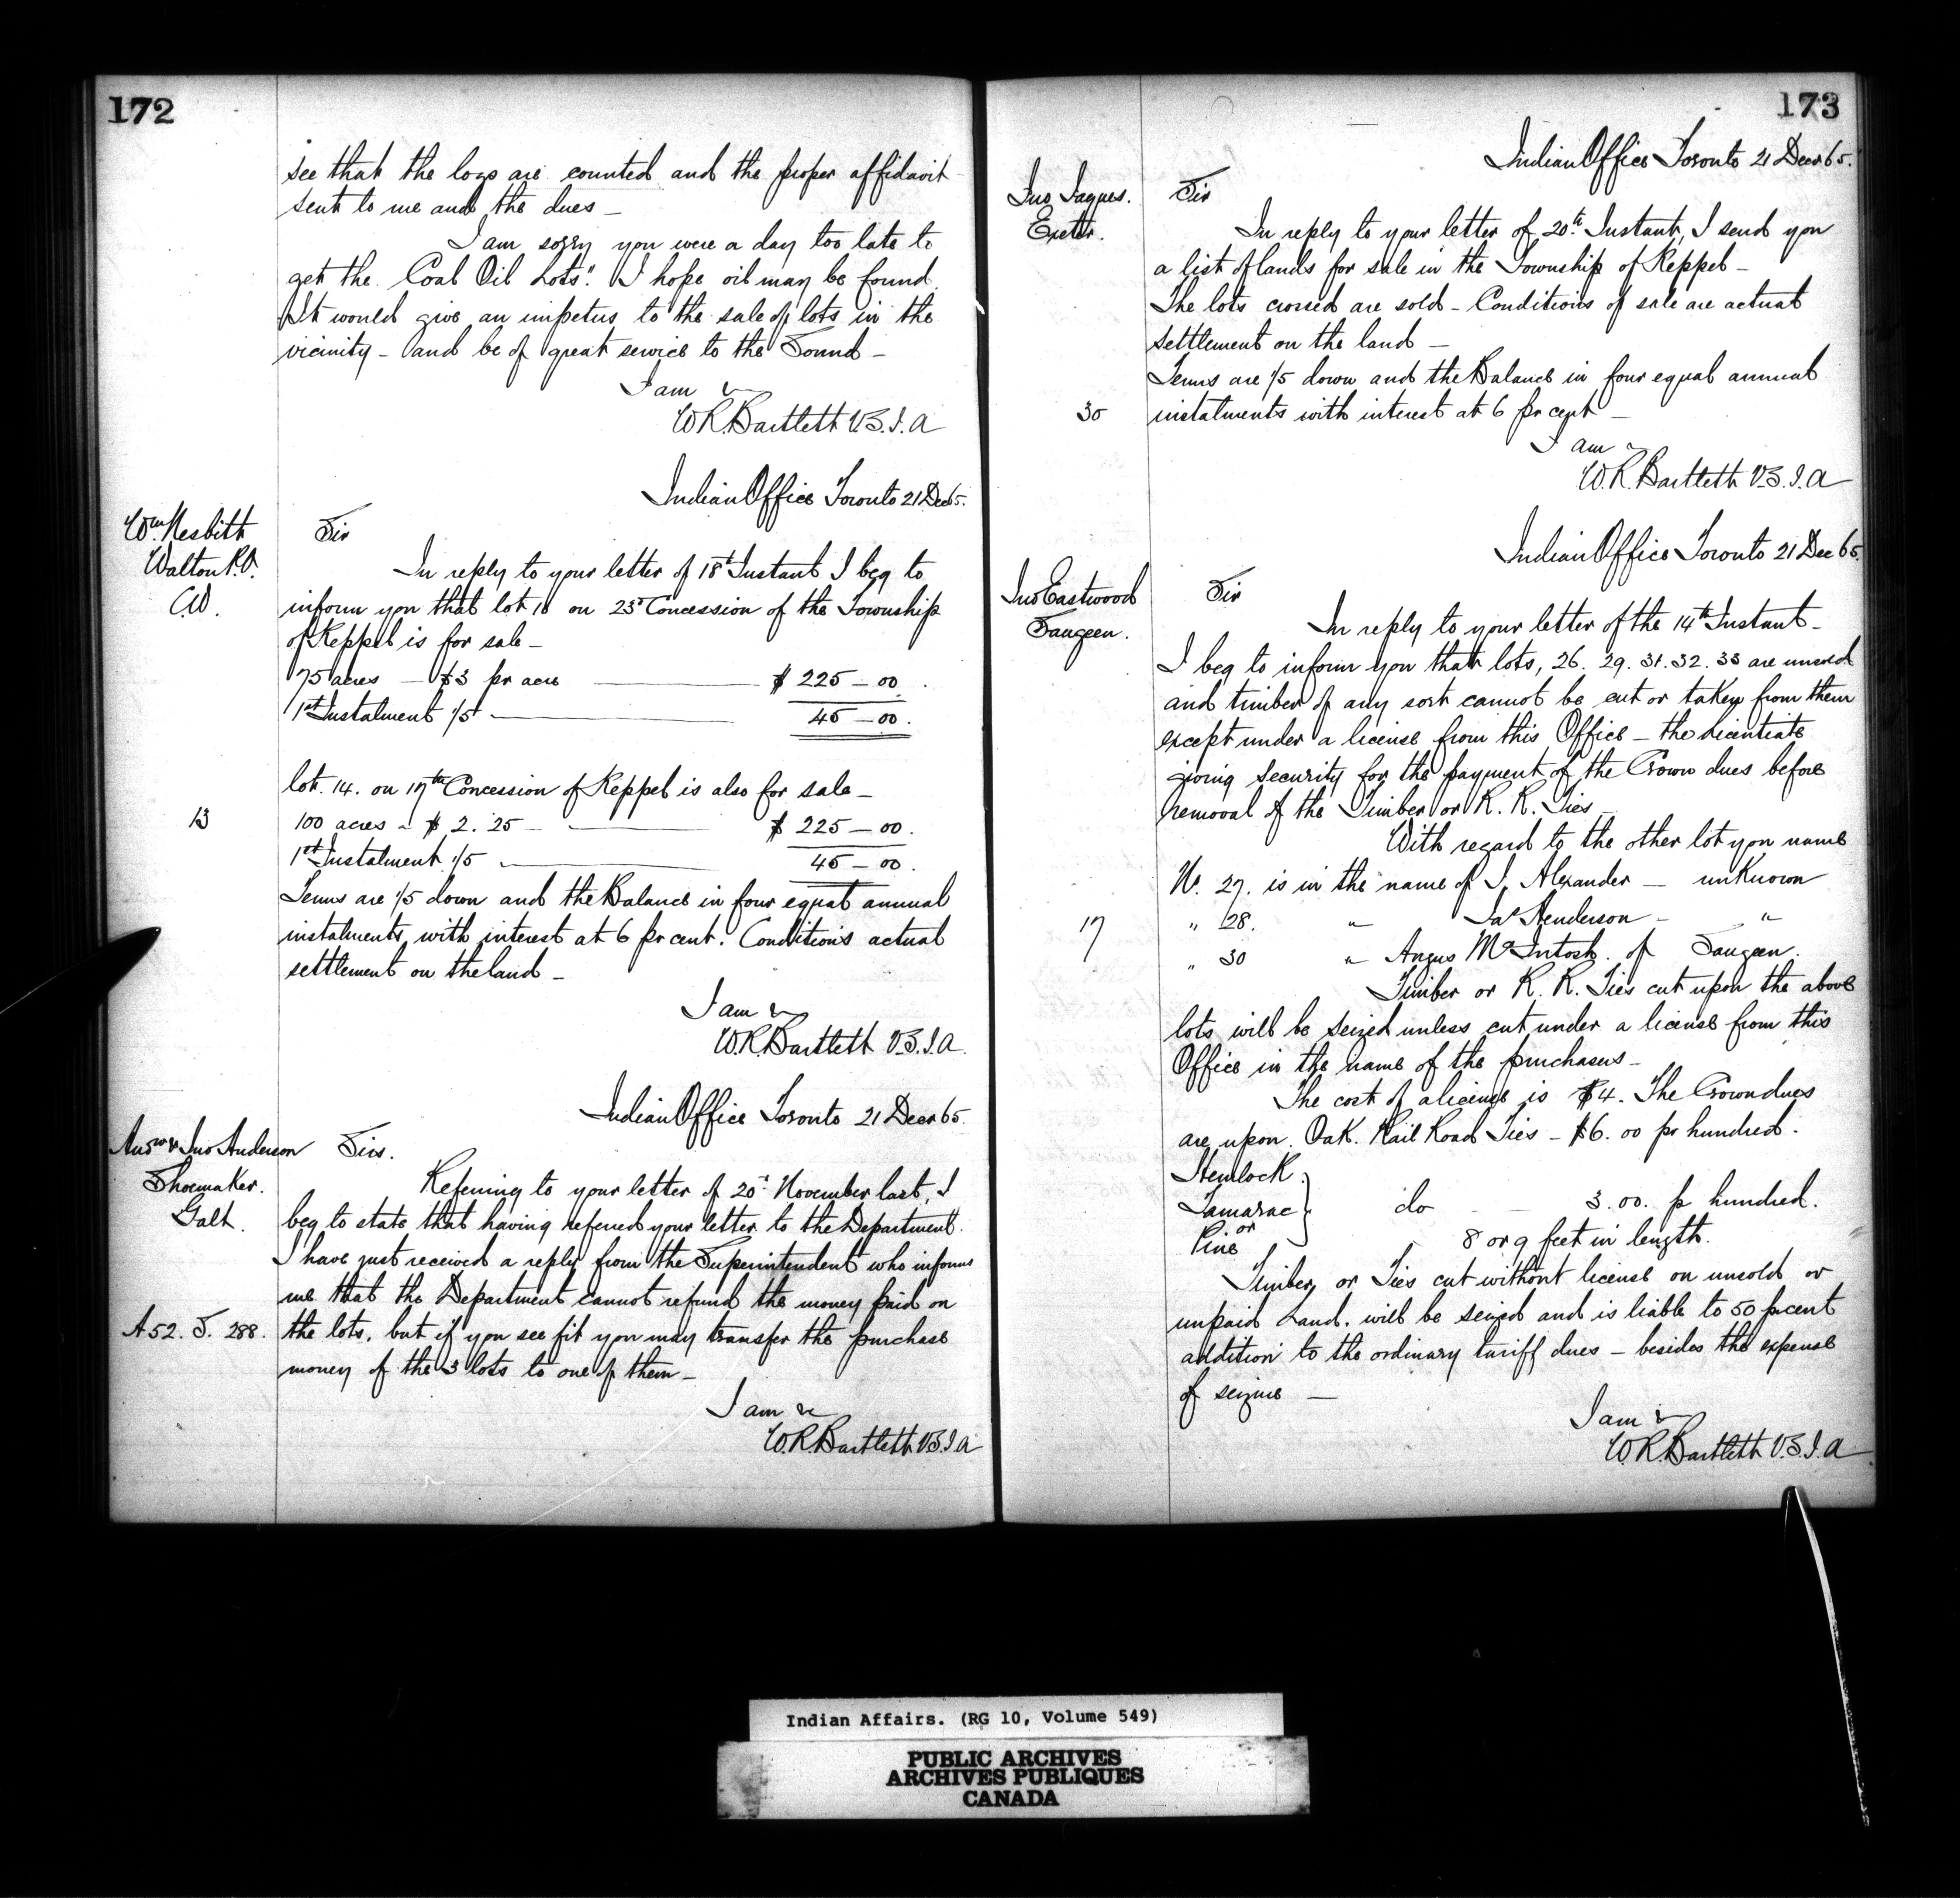 172
see that the logs are counted and the proper affidavit
sent to me and the dues —
I am sorry you were a day too late to
get the "Coal Oil Lots". I hope oil may be found.
It would give an impetus to the sale of lots in the
vicinity — and be of great service to the Sound —
I am &
W.R. Bartlett V.S.I.A
Indian Office Toronto 21 Dec 65.
Wm Nesbitt
Walton P.O.
C.W.
Sir
In reply to your letter of 18th Instant I beg to
inform you that lot on 23d Concession of the Township
of Keppel is for sale —
75 acres — $3 pr acre — $ 225 — 00.
1st Instalment 1/5 — 45 — 00.
lot. 14. on 17th Concession of Keppel is also for sale —
13
100 acres — $ 2.25 — $ 225 — 00.
1st Instalment 1/5 — 45 — 00.
Terms are 1/5 down and the Balance in four equal annual
instalments, with interest at 6 pr cent. Conditions actual
settlement on the land —
I am &
W.R. Bartlett V.S.I.A.
Indian Office Toronto 21 Decr 65.
Andw & Jno Anderson
Shoemaker.
Galt.
Sirs.
Referring to your letter of 20th November last, I
beg to state that having referred your letter to the Department.
I have just received a reply from the Superintendent who informs
me that the Department cannot refund the money paid on
A 52. S. 288.
the lots, but if you see fit you may transfer the purchase
money of the 3 lots to one of them —
I am &
W.R. Bartlett V.S.I.A
173
Indian Office Toronto 21 Decr 65.
Jno Jaques.
Exeter.
Sir
In reply to your letter of 20th Instant, I send you
a list of lands for sale in the Township of Keppel —
The lots crossed are sold — Conditions of sale are actual
settlement on the land —
Terms are 1/5 down and the Balance in four equal annual
30
instalments with interest at 6 pr cent —
I am &
W.R. Bartlett V.S.I.A
Indian Office Toronto 21 Dec 65.
Jno Eastwood
Saugeen.
Sir
In reply to your letter of the 14th Instant —
I beg to inform you that lots, 26. 29. 31. 32. 33 are unsold
and timber of any sort cannot be cut or taken from them
except under a license from this Office — the licentiate
giving security for the payment of the Crown dues before
removal of the Timber or R. R. Ties —
With regard to the other lot you name
No. 27. is in the name of J. Alexander — unknown
17
" 28. " Jas Henderson — "
" 30 " Angus McIntosh. of Saugeen.
Timber or R. R. Ties cut upon the above
lots will be seized unless cut under a license from this
Office in the name of the purchasers —
The cost of a license is $4. The Crown dues
are upon. Oak. Rail Road Ties — $6.00 pr hundred.
Hemlock
Tamarac } do 3.00. p hundred.
or
Pine 8 or 9 feet in length.
Timber or Ties cut without license on unsold or
unpaid Land. will be seized and is liable to 50 prcent
addition to the ordinary tariff dues — besides the expense
of seizure —
I am &
W.R. Bartlett V.S.I.A
Indian Affairs. (RG 10, Volume 549)
PUBLIC ARCHIVES
ARCHIVES PUBLIQUES
CANADA